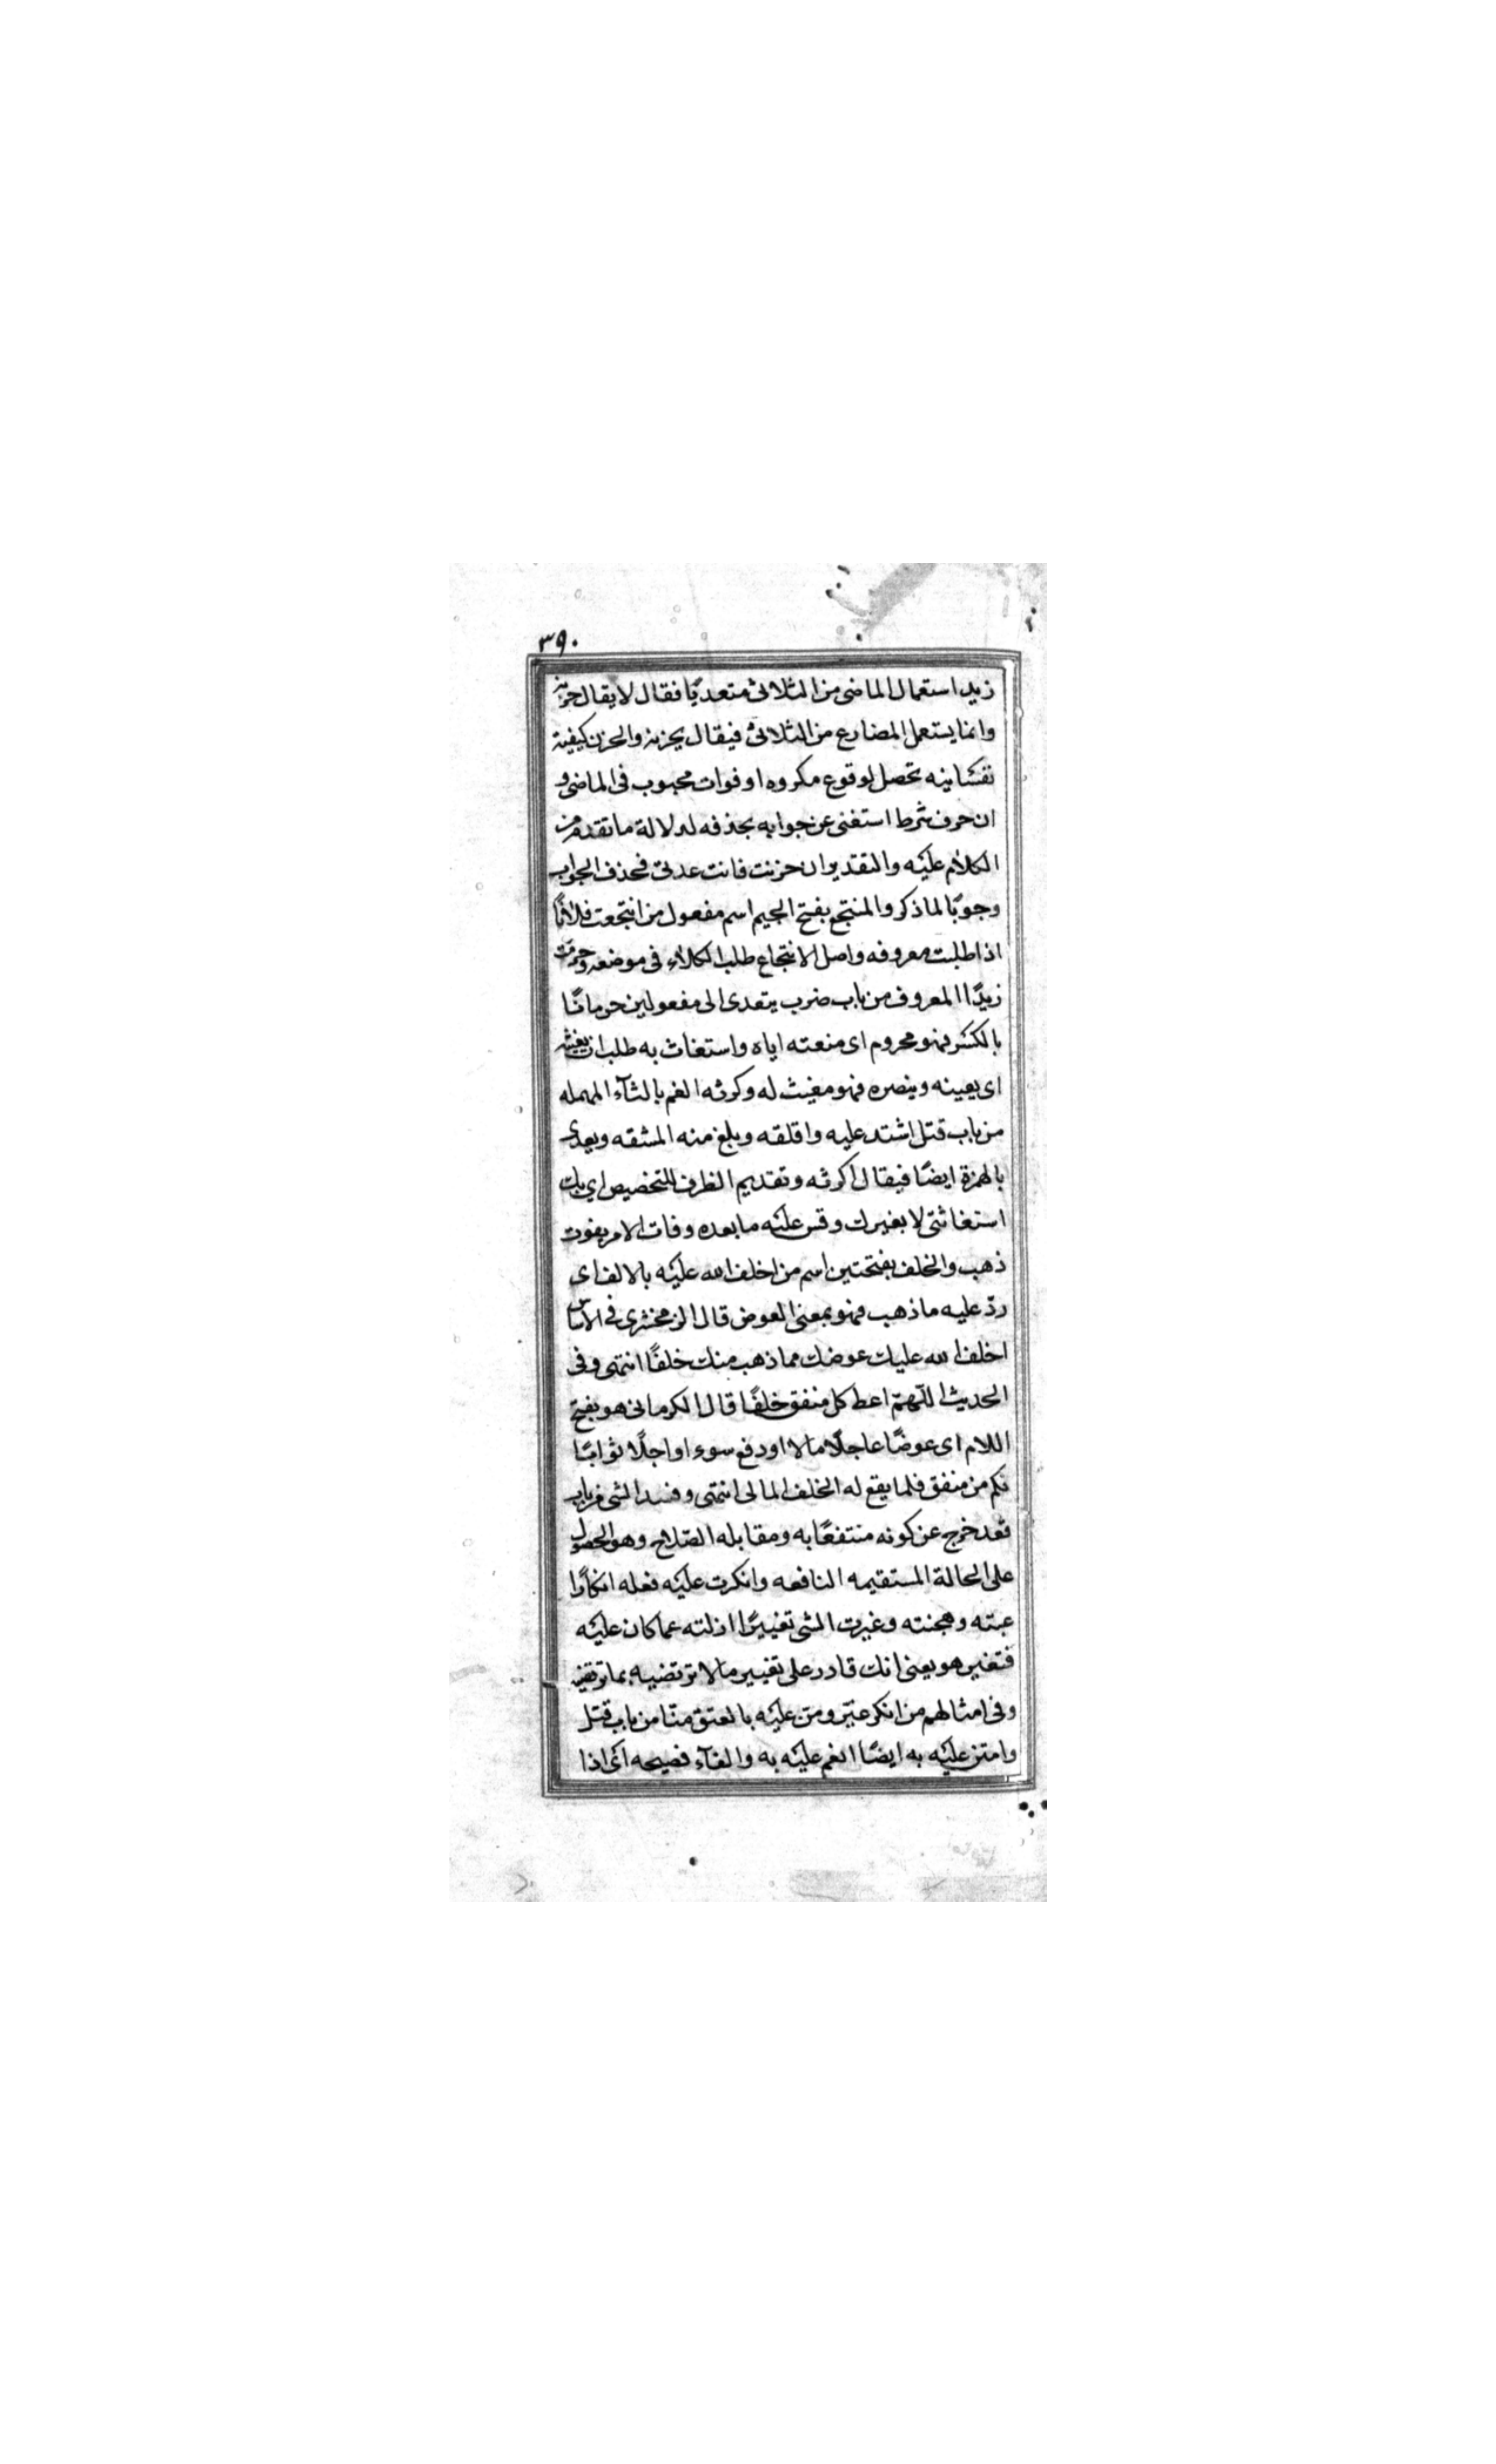 ٣٩٠
زيد استعمال الماضى من الثلاثى متعديًا فقال لا يقال حزنه
وانما يستعمل المضارع من الثلاثى فيقال يحزنه والحزن كيفية
نفسانيه تحصل لوقوع مكروه او فوات محبوب فى الماضى و
ان حرف شرط استغنى عن جوابه بحذفه لدلالة ما تقدم من
الكلام عليه والتقدير ان حزنت فانت عدتى فحذف الجواب
وجوبًا لما ذكر والمنتجع بفتح الجيم اسم مفعول من انتجعت فلانًا
اذا طلبت معروفه واصل الانتجاع طلب الكلاء فى موضعه وحرمت
زيدًا المعروف من باب ضرب يتعدى الى مفعولين حرمانًا
بالكسر فهو محروم اى منعته اياه واستغاث به طلب ان يغيثه
اى يعينه وينصره فهو مغيث له وكرثه الغم بالثآء المهمله
من باب قتل اشتد عليه واقلقه وبلغ منه المشقه ويعدى
بالهمزة ايضًا فيقال اكرثه وتقديم الظرف للتخصيص اى بك
استغاثتى لا بغيرك وقس عليه ما بعده وفات الامر يفوت
ذهب والخلف بفتحتين اسم من اخلف الله عليه بالالف اى
ردّ عليه ما ذهب فهو بمعنى العوض قال الزمخشرى فى الاساس
اخلف الله عليك عوضك مما ذهب منك خلفًا انتهى وفى
الحديث اللّهمّ اعط كل منفق خلفًا قال الكرمانى هو بفتح
اللام اى عوضًا عاجلًا مالا او دفع سوء او اجلًا ثوابًا
فكم من منفق فلما يقع له الخلف المالى انتهى وفسد الشى من باب
قعد خرج عن كونه منتفعًا به ومقابله الصّلاح وهو الحصول
على الحالة المستقيمه النافعه وانكرت عليه فعله انكارًا
عبته وهجنته وغيرت الشى تغييرًا ازلته عما كان عليه
فتغير هو يعنى انك قادر على تغيير ما لا ترتضيه بما ترتضيه
وفى امثالهم من انكر غيّر ومن عليه بالعتق منًا من باب قتل
وامتن عليه به ايضًا انعم عليه به والفآء فصيحه اى اذا